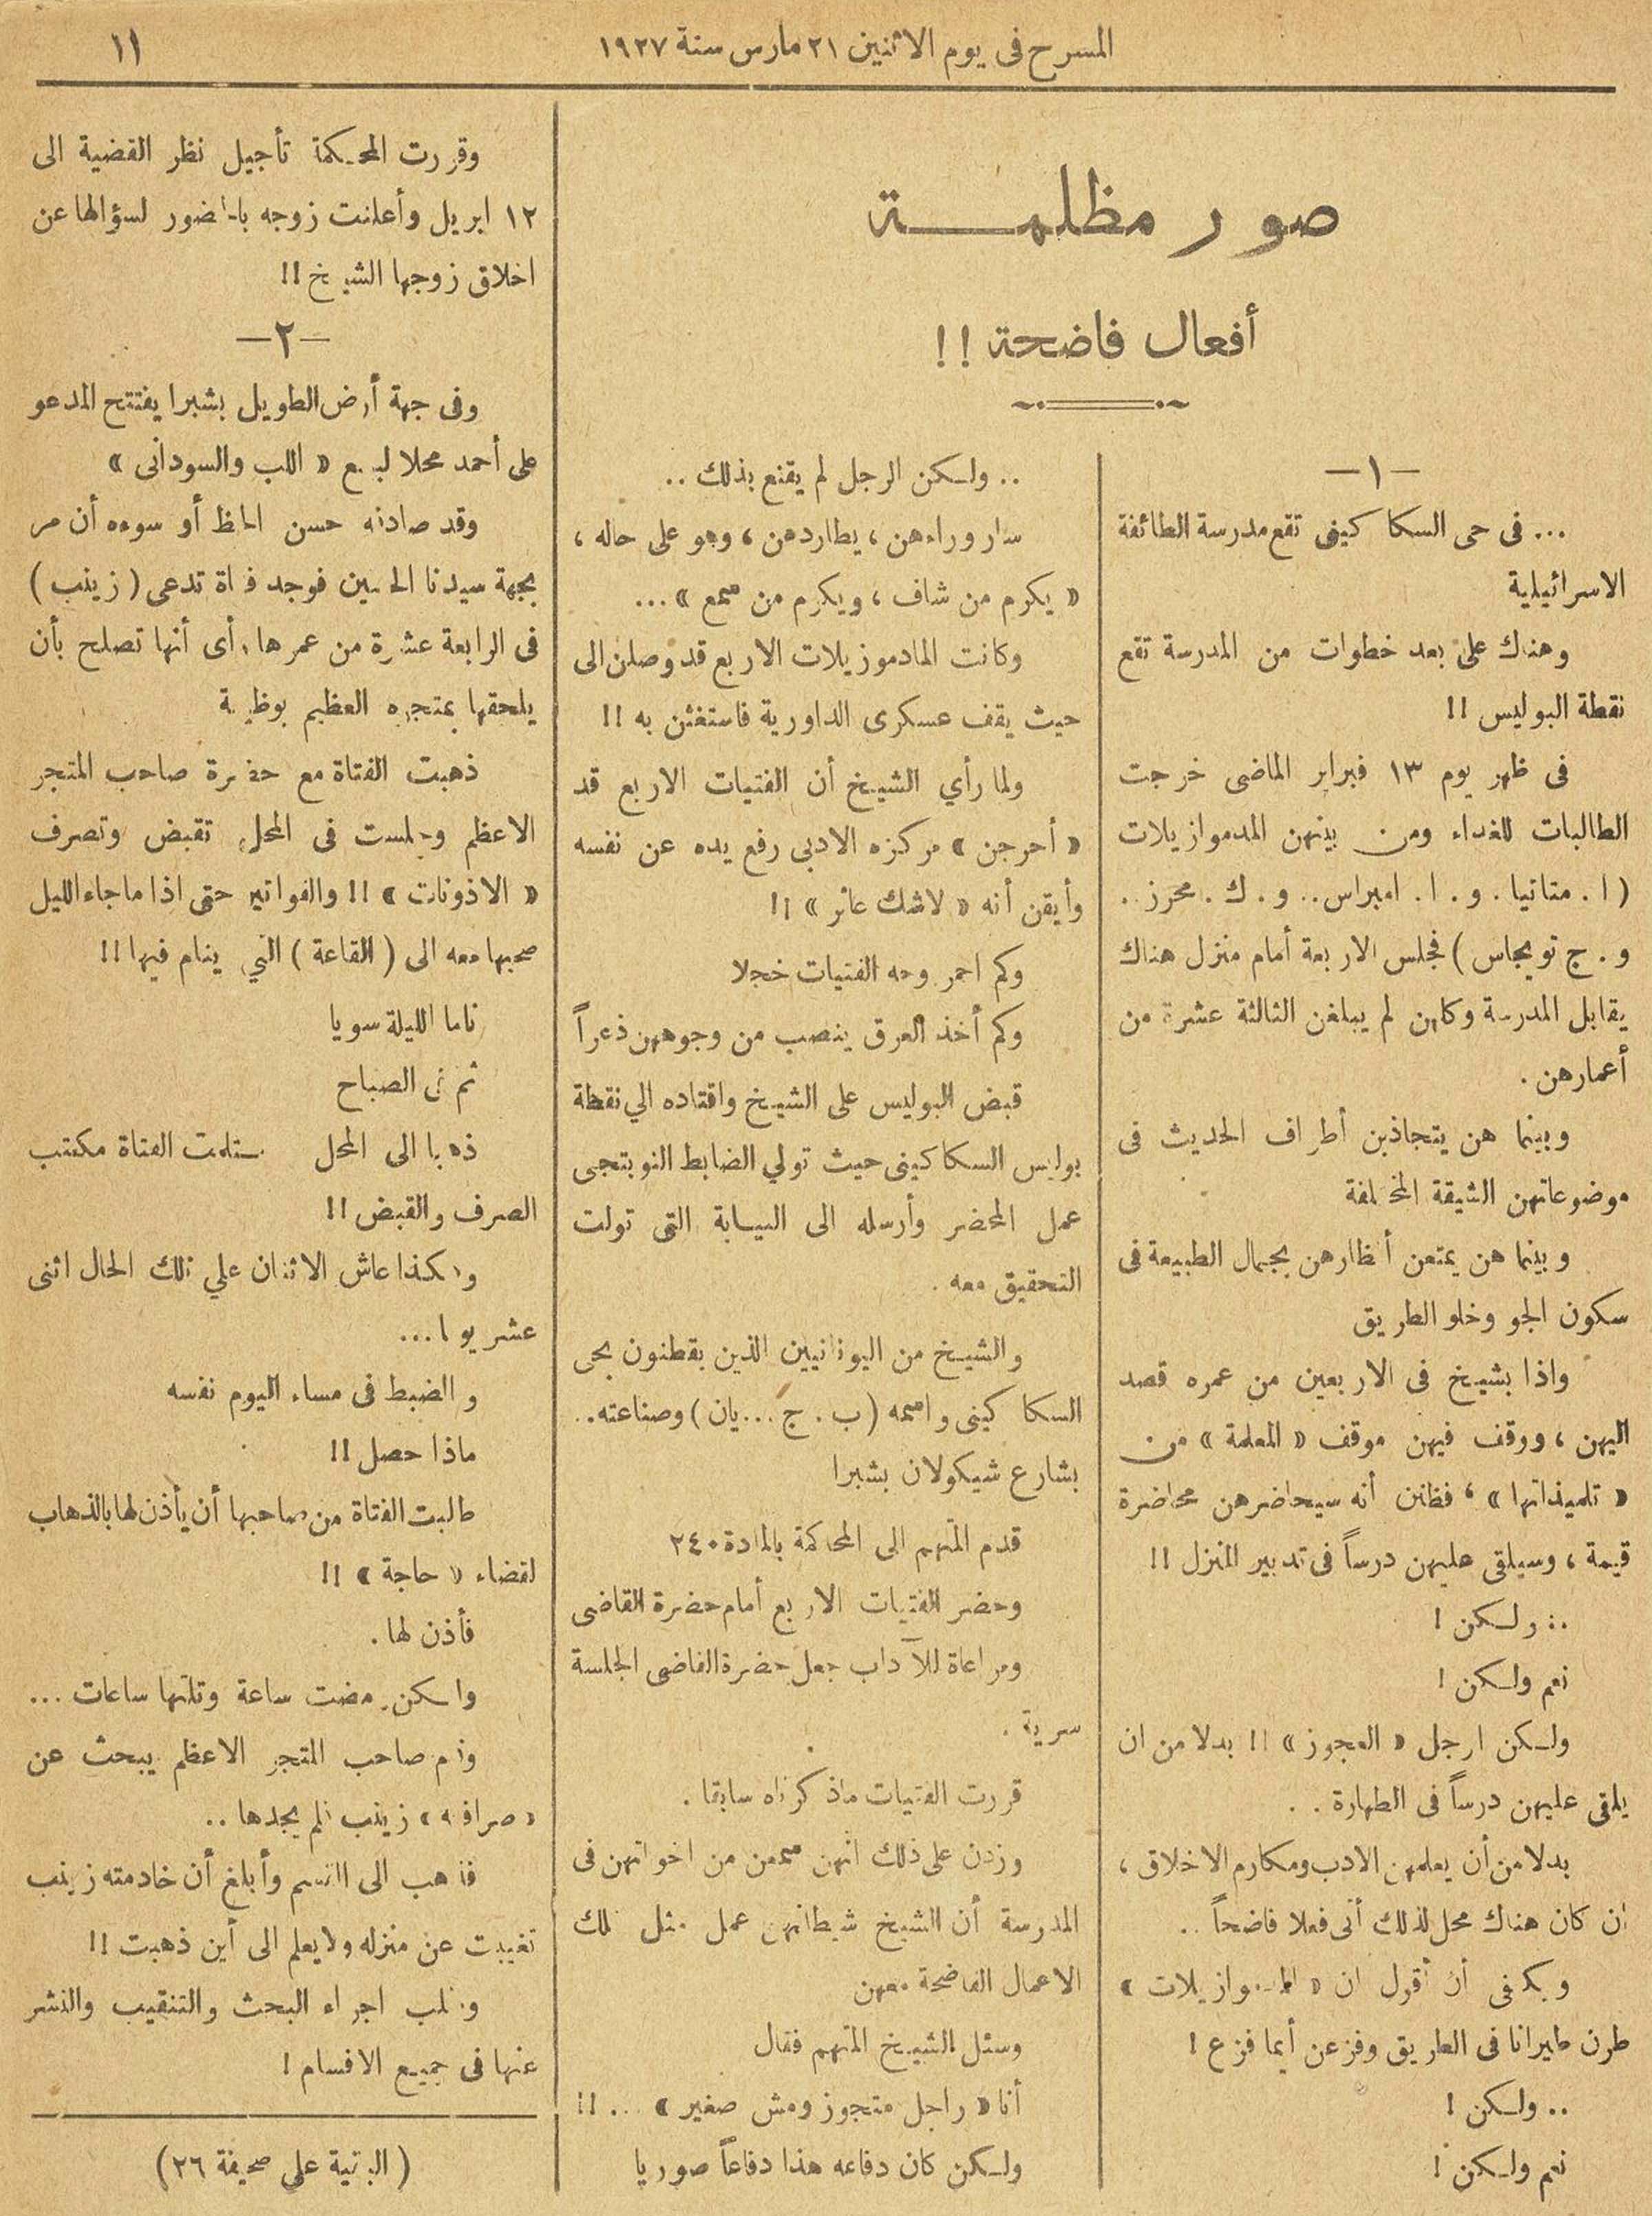 المسرح فى يوم الاثنين ٢١ مارس سنة ١٩٢٧
١١
صور مظلمة
أفعال فاضحة !!
— ١ —
... فى حى السكاكينى تقع مدرسة الطائفة
الاسرائيلية
وهناك على بعد خطوات من المدرسة تقع
نقطة البوليس !!
فى ظهر يوم ١٣ فبراير الماضى خرجت
الطالبات للغداء ومن بينهن المدموازيلات
( ا . متاتيا . و . ا . امبراس .. و . ك . محرز ..
و . ج تويجاس ) فجلس الاربعة أمام منزل هناك
يقابل المدرسة وكلهن لم يبلغن الثالثة عشرة من
أعمارهن .
وبينما هن يتجاذبن أطراف الحديث فى
موضوعاتهن الشيقة المختلفة
وبينما هن يمتعن أنظارهن بجمال الطبيعة فى
سكون الجو وخلو الطريق
واذا بشيخ فى الاربعين من عمره قصد
اليهن ، ووقف فيهن موقف « المعلمة » من
« تلميذاتها » ، فظنن أنه سيحاضرهن محاضرة
قيمة ، وسيلقى عليهن درساً فى تدبير المنزل !!
.. ولكن !
نعم ولكن !
ولكن الرجل « العجوز » !! بدلا من ان
يلقى عليهن درساً فى الطهارة . .
بدلا من أن يعلمهن الادب ومكارم الاخلاق ،
ان كان هناك محل لذلك أتى فعلا فاضحاً ..
ويكفى أن أقول ان « المدموازيلات »
طرن طيرانا فى الطريق وفزعن أيما فزع !
.. ولكن !
نعم ولكن !
.. ولكن الرجل لم يقنع بذلك ..
سار وراءهن ، يطاردهن ، وهو على حاله ،
« يكرم من شاف ، ويكرم من سمع » ...
وكانت المادموزيلات الاربع قد وصلن الى
حيث يقف عسكرى الداورية فاستغثن به !!
ولما رأي الشيخ أن الفتيات الاربع قد
« أحرجن » مركزه الادبى رفع يده عن نفسه
وأيقن أنه « لاشك عائر » !!
وكم احمر وجه الفتيات خجلا
وكم أخذ العرق ينصب من وجوههن ذعراً
قبض البوليس على الشيخ واقتاده الي نقطة
بوليس السكاكينى حيث تولي الضابط النوبتجى
عمل المحضر وأرسله الى النيابة التى تولت
التحقيق معه .
والشيخ من اليونانيين الذين يقطنون بحى
السكاكينى واسمه ( ب . ج ... يان ) وصناعته ..
بشارع شيكولان بشبرا
قدم المتهم الى المحاكمة بالمادة ٢٤٠
وحضر الفتيات الاربع أمام حضرة القاضى
ومراعاة للآداب جعل حضرة القاضى الجلسة
سرية .
قررت الفتيات ماذكرناه سابقا .
وزدن على ذلك انهن سمعن من اخواتهن فى
المدرسة أن الشيخ شيطانهن عمل مثل تلك
الاعمال الفاضحة معهن
وسئل الشيخ المتهم فقال
أنا « راجل متجوز ومش صغير » ... !!
ولكن كان دفاعه هذا دفاعاً صوريا
وقررت المحكمة تأجيل نظر القضية الى
١٢ ابريل وأعلنت زوجه بالحضور لسؤالها عن
اخلاق زوجها الشيخ !!
— ٢ —
وفى جهة أرض الطويل بشبرا يفتتح المدعو
على أحمد محلا لبيع « اللب والسودانى »
وقد صادفه حسن الحظ أو سوءه أن مر
بجهة سيدنا الحسين فوجد فتاة تدعى ( زينب )
فى الرابعة عشرة من عمرها رأى أنها تصلح بأن
يلحقها بمتجره العظيم بوظيفة
ذهبت الفتاة مع حضرة صاحب المتجر
الاعظم وجلست فى المحل تقبض وتصرف
« الاذونات » !! والفواتير حتى اذا ماجاء الليل
صحبها معه الى ( القاعة ) التي ينام فيها !!
ناما الليلة سويا
ثم فى الصباح
ذهبا الى المحل ستلمت الفتاة مكتب
الصرف والقبض !!
وهكذا عاش الاثنان علي تلك الحال اثنى
عشر يوما ...
وبالضبط فى مساء اليوم نفسه
ماذا حصل !!
طالبت الفتاة من صاحبها أن يأذن لها بالذهاب
لقضاء « حاجة » !!
فأذن لها .
ولكن مضت ساعة وتلتها ساعات ...
وقام صاحب المتجر الاعظم يبحث عن
« صرافه » زينب فلم يجدها ..
فذهب الى القسم وأبلغ أن خادمته زينب
تغيبت عن منزله ولا يعلم الى أين ذهبت !!
وطلب اجراء البحث والتنقيب والنشر
عنها فى جميع الاقسام !
( البقية على صحيفة ٢٦ )